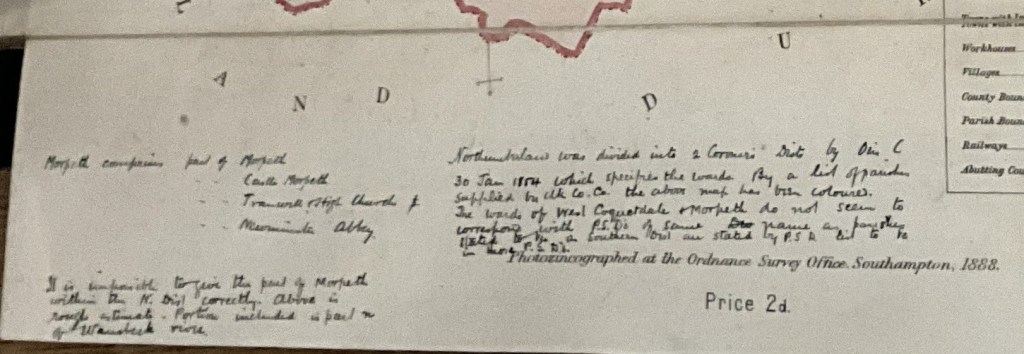 A
N
D
D
U
Workhouses
Villages
County Boun
Parish Boun
Railways
Abutting Cou
Morpeth comprises part of Morpeth
Castle Morpeth
Tranwell & High Church
Newminster Abbey
It is impossible to give the part of Morpeth
within the N. Dist correctly. Above is
rough estimate. Portion included is part n
of Wansbeck river
Northumberland was divided into 2 Coroners' Dists by
30 Jan 1854 which specifies the wards. By a list of parishes
supplied by Clk Co. Co. the above map has been coloured.
The wards of West Coquetdale & Morpeth do not seem to
correspond with P.S.D's of same name as parishes
stated to be in Southern Dist are stated by P.S.D. list to be
in those P.S.D's.
Photozincographed at the Ordnance Survey Office, Southampton, 1888.
Price 2d.